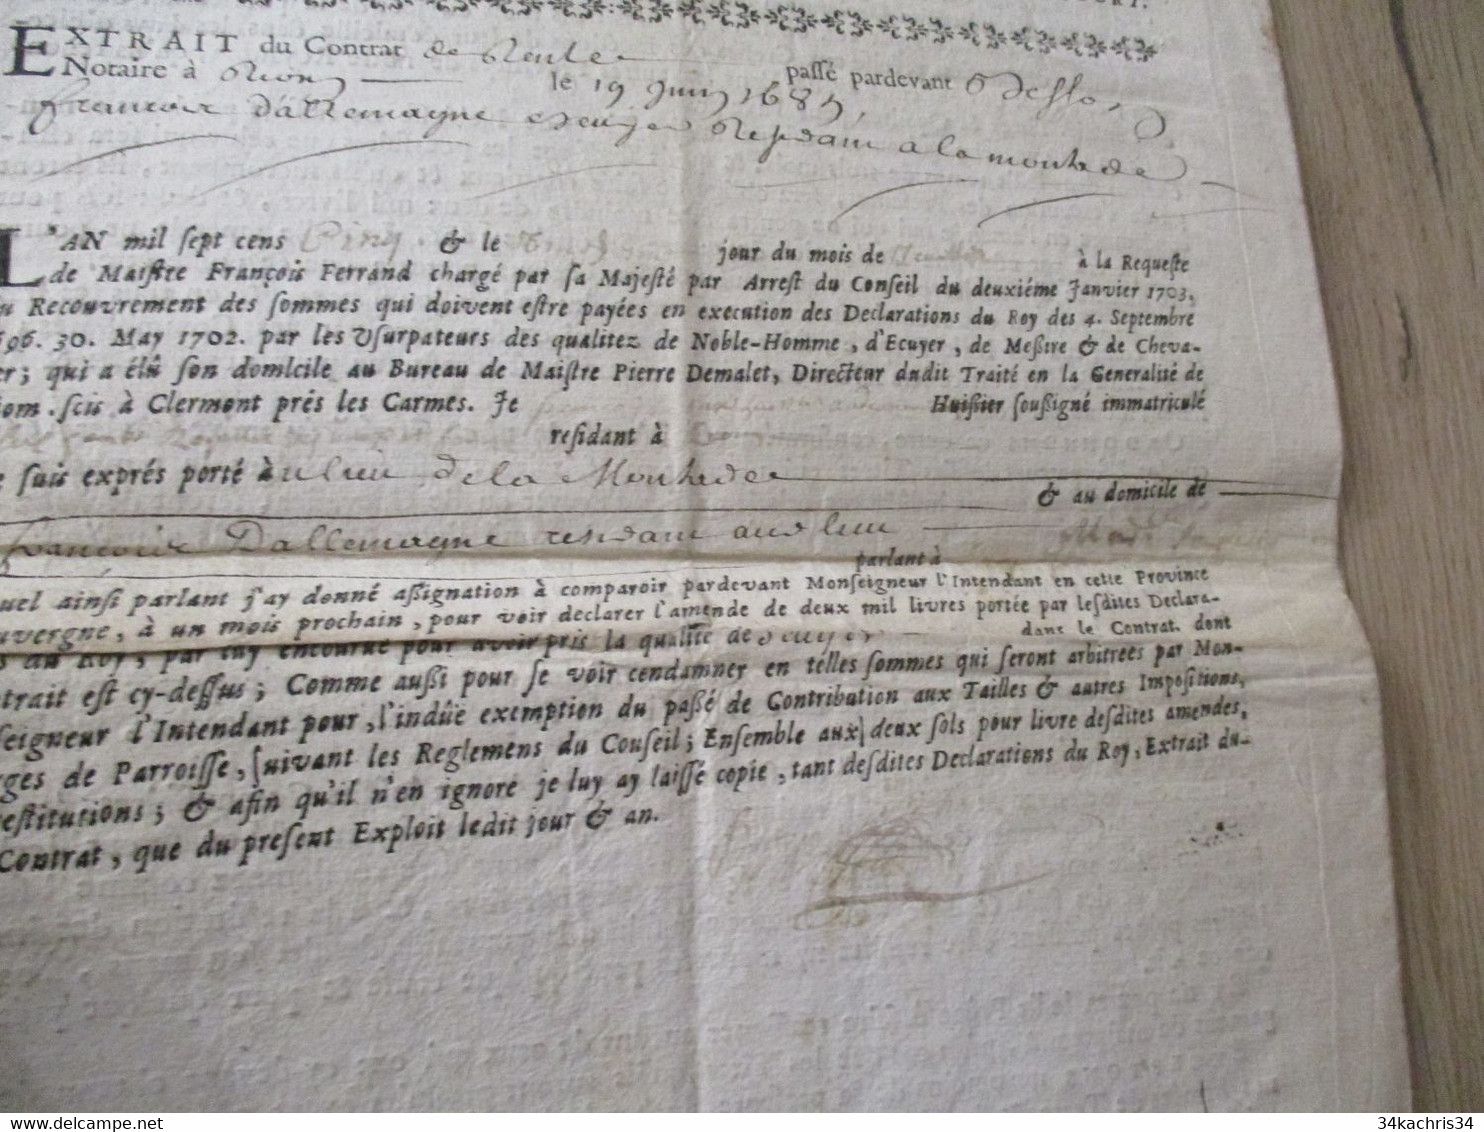 EXTRAIT du Contrat de Rente passé pardevant
Notaire à Riom le 19 Juin 168
francoix dallemagne escuyer Residant a la montade
L'AN mil sept cens Cinq & le jour du mois de à la Requeste
de Maistre François Ferrand chargé par sa Majesté par Arrest du Conseil du deuxiéme Janvier 1703.
u Recouvrement des sommes qui doivent estre payées en execution des Declarations du Roy des 4. Septembre
696. 30. May 1702. par les Usurpateurs des qualitez de Noble-Homme, d'Ecuyer, de Messire & de Cheva-
er; qui a élû son domicile au Bureau de Maistre Pierre Demalet, Directeur dudit Traité en la Generalité de
iom. scis à Clermont prés les Carmes. Je Huissier soussigné immatriculé
residant à
e suis exprés porté au lieu de la Montade & au domicile de
francoix Dallemagne residant aud lieu
parlant à
quel ainsi parlant j'ay donné assignation à comparoir pardevant Monseigneur l'Intendant en cette Province
uvergne, à un mois prochain, pour voir declarer l'amende de deux mil livres portée par lesdites Declara-
s du Roy, par luy encourue pour avoir pris la qualité de escuyer dans le Contrat. dont
trait est cy-dessus; Comme aussi pour se voir condamner en telles sommes qui seront arbitrées par Mon-
seigneur l'Intendant pour, l'indûe exemption du passé de Contribution aux Tailles & autres Impositions,
rges de Parroisse, suivant les Reglemens du Conseil; Ensemble aux deux sols pour livre desdites amendes,
restitutions; & afin qu'il n'en ignore je luy ay laissé copie, tant desdites Declarations du Roy, Extrait du-
Contrat, que du present Exploit ledit jour & an.
34kachris34